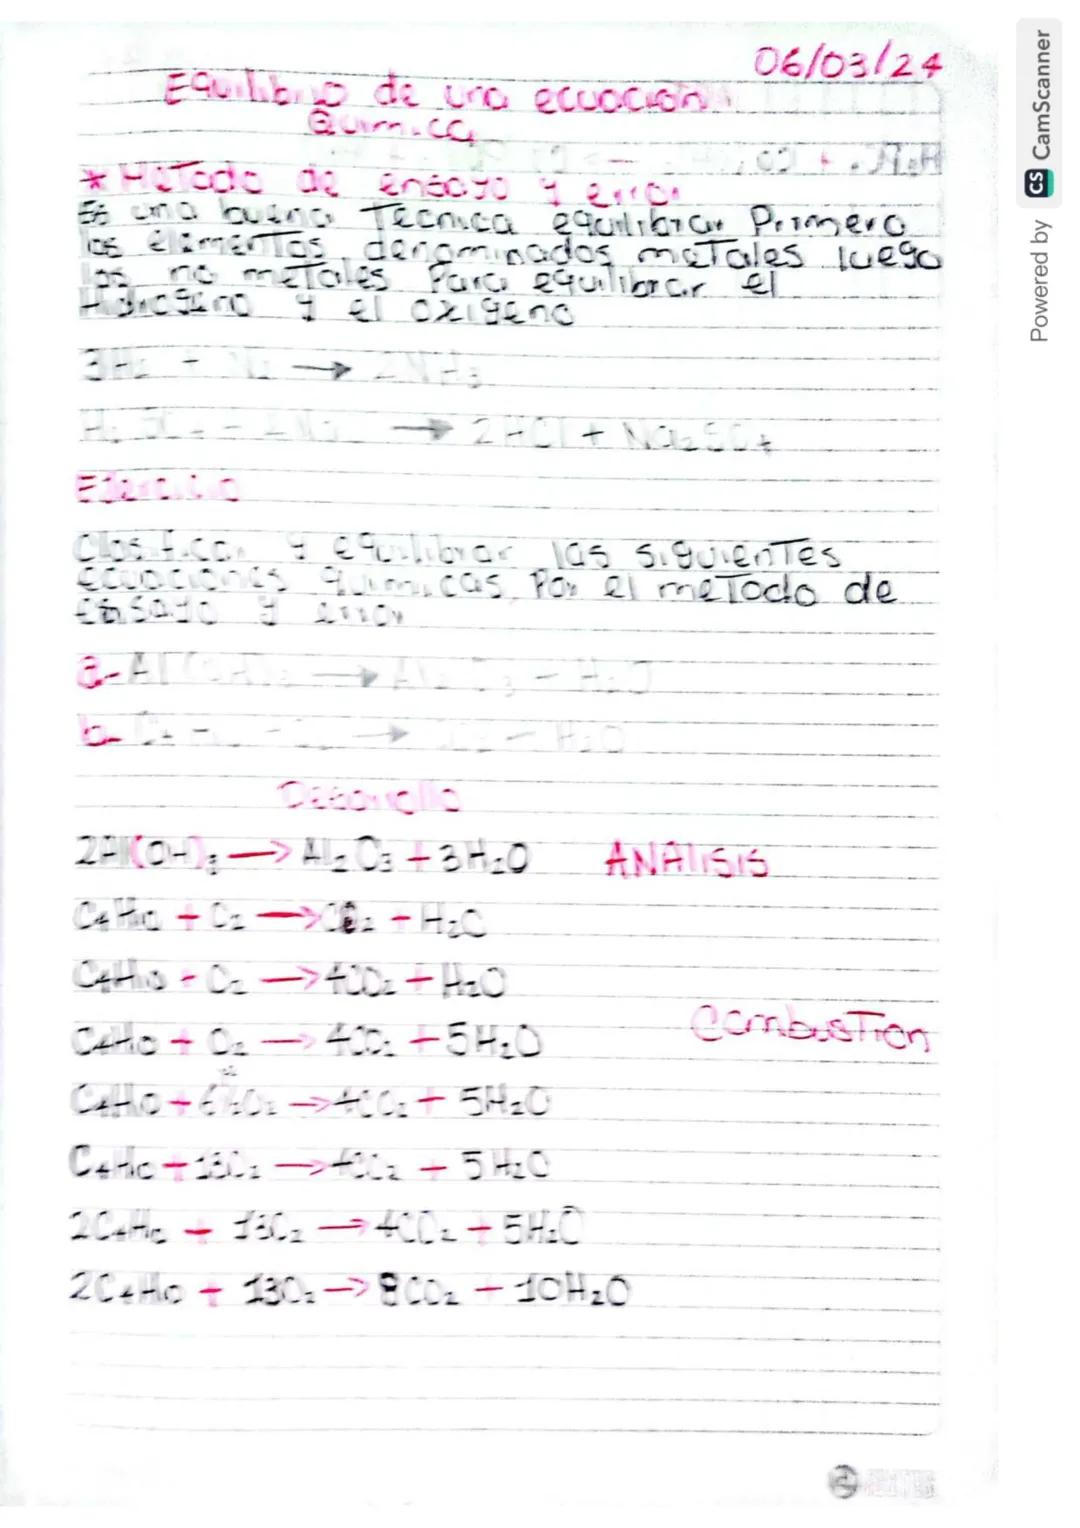 06/03/24
Equilibrio de una ecuación
Quimica
* Metodo de ensayo y error
Es una buena Tecnica equilibrar Primero
los elementos denominados metales luego
los no metales Para equilibrar el
Hidrogeno y el oxigeno
3H2 + N2 → 2NH3
→ 2HCl + Na2SO4
Ejercicio
Clasificar y equilibrar las siguientes
ecuaciones quimicas. Por el metodo de
Ensayo y error
a- Al(OH)3 → Al2O3 - H2O
b- → - H2O
Desarrollo
2Al(OH)3 → Al2O3 + 3H2O ANALISIS
C4H10 + O2 → CO2 + H2O
C4H10 + O2 → 4CO2 + H2O
C4H10 + O2 → 4CO2 + 5H2O Combustion
C4H10 + O2 → 4CO2 + 5H2O
C4H10 + 13O2 → 4CO2 + 5H2O
2C4H10 + 13O2 → 4CO2 + 5H2O
2C4H10 + 13O2 → 8CO2 + 10H2O
Powered by CS CamScanner